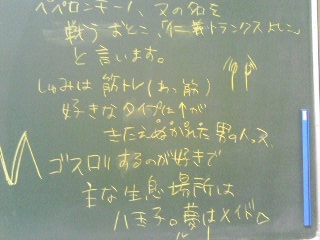 ペペロンチーノ、又の名を
戦うおとこ、「仁義トランクスよしこ」
と言います。
しゅみは筋トレ(わっ、筋)
好きなタイプは↑が
きたえぬかれた男の人ッス
ゴスロリするのが好きで
主な生息場所は
八王子。夢はメイド